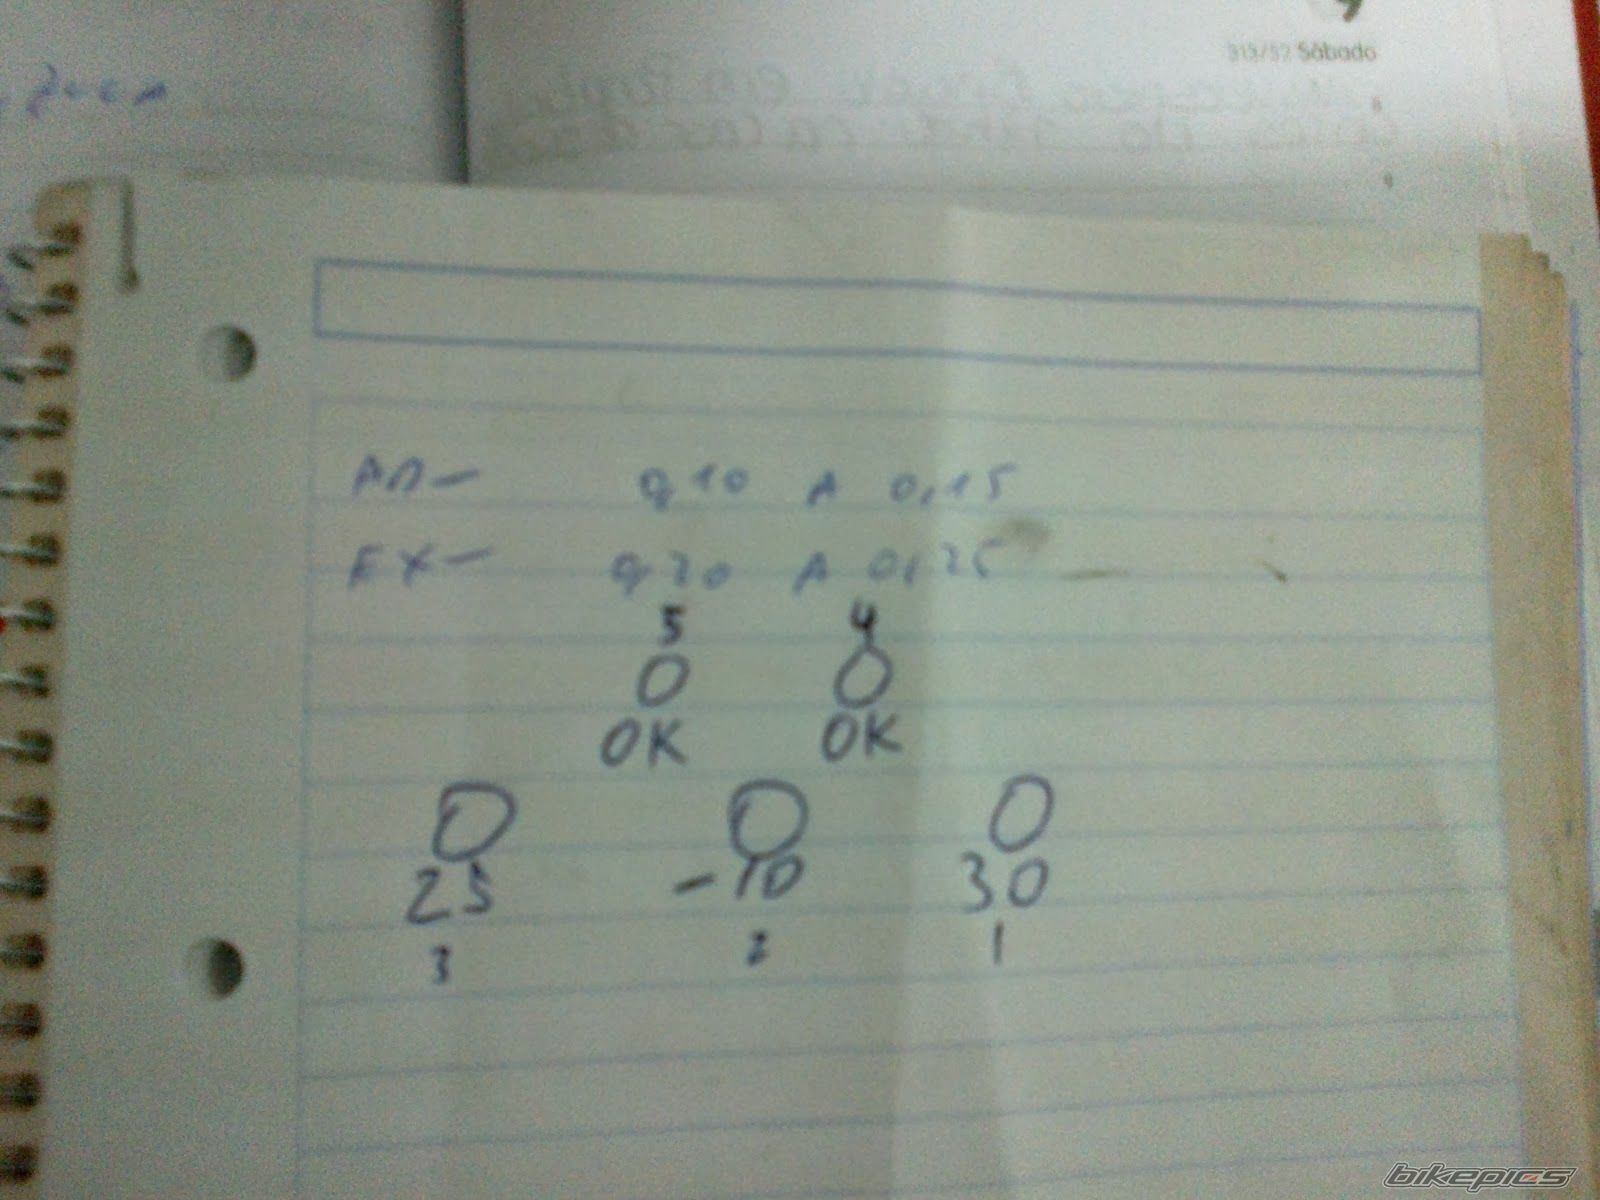 9
313/52 Sábado
8
9
AD- 0,10 A 0,15
EX- 0,20 A 0,25
5 4
O O
OK OK
O O O
25 -10 30
3 2 1
bikepics